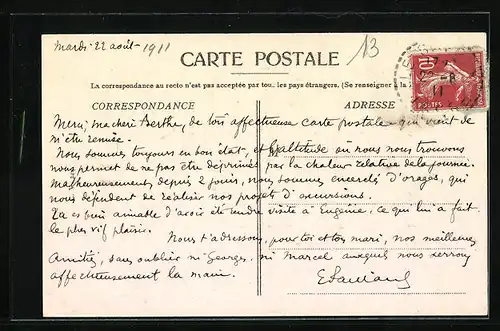 Mardi 22 août 1911
13
CARTE POSTALE
La correspondance au recto n'est pas acceptée par tous les pays étrangers. (Se renseigner à la
CORRESPONDANCE
ADRESSE
10
POSTES
Merci, ma chère Berthe, de ton affectueuse carte postale qui vient de
m'être remise.
Nous sommes toujours en bon état, et l'altitude où nous nous trouvons
nous permet de ne pas être déprimés par la chaleur relative de la journée.
Malheureusement, depuis 2 jours, nous sommes encerclés d'orages, qui
nous défendent de réaliser nos projets d'excursions.
Tu es bien aimable d'avoir été rendre visite à Eugénie, ce qui lui a fait
le plus vif plaisir.
Nous t'adressons, pour toi et ton mari, nos meilleures
Amitiés, sans oublier ni Georges, ni Marcel auxquels nous serrons
affectueusement la main.